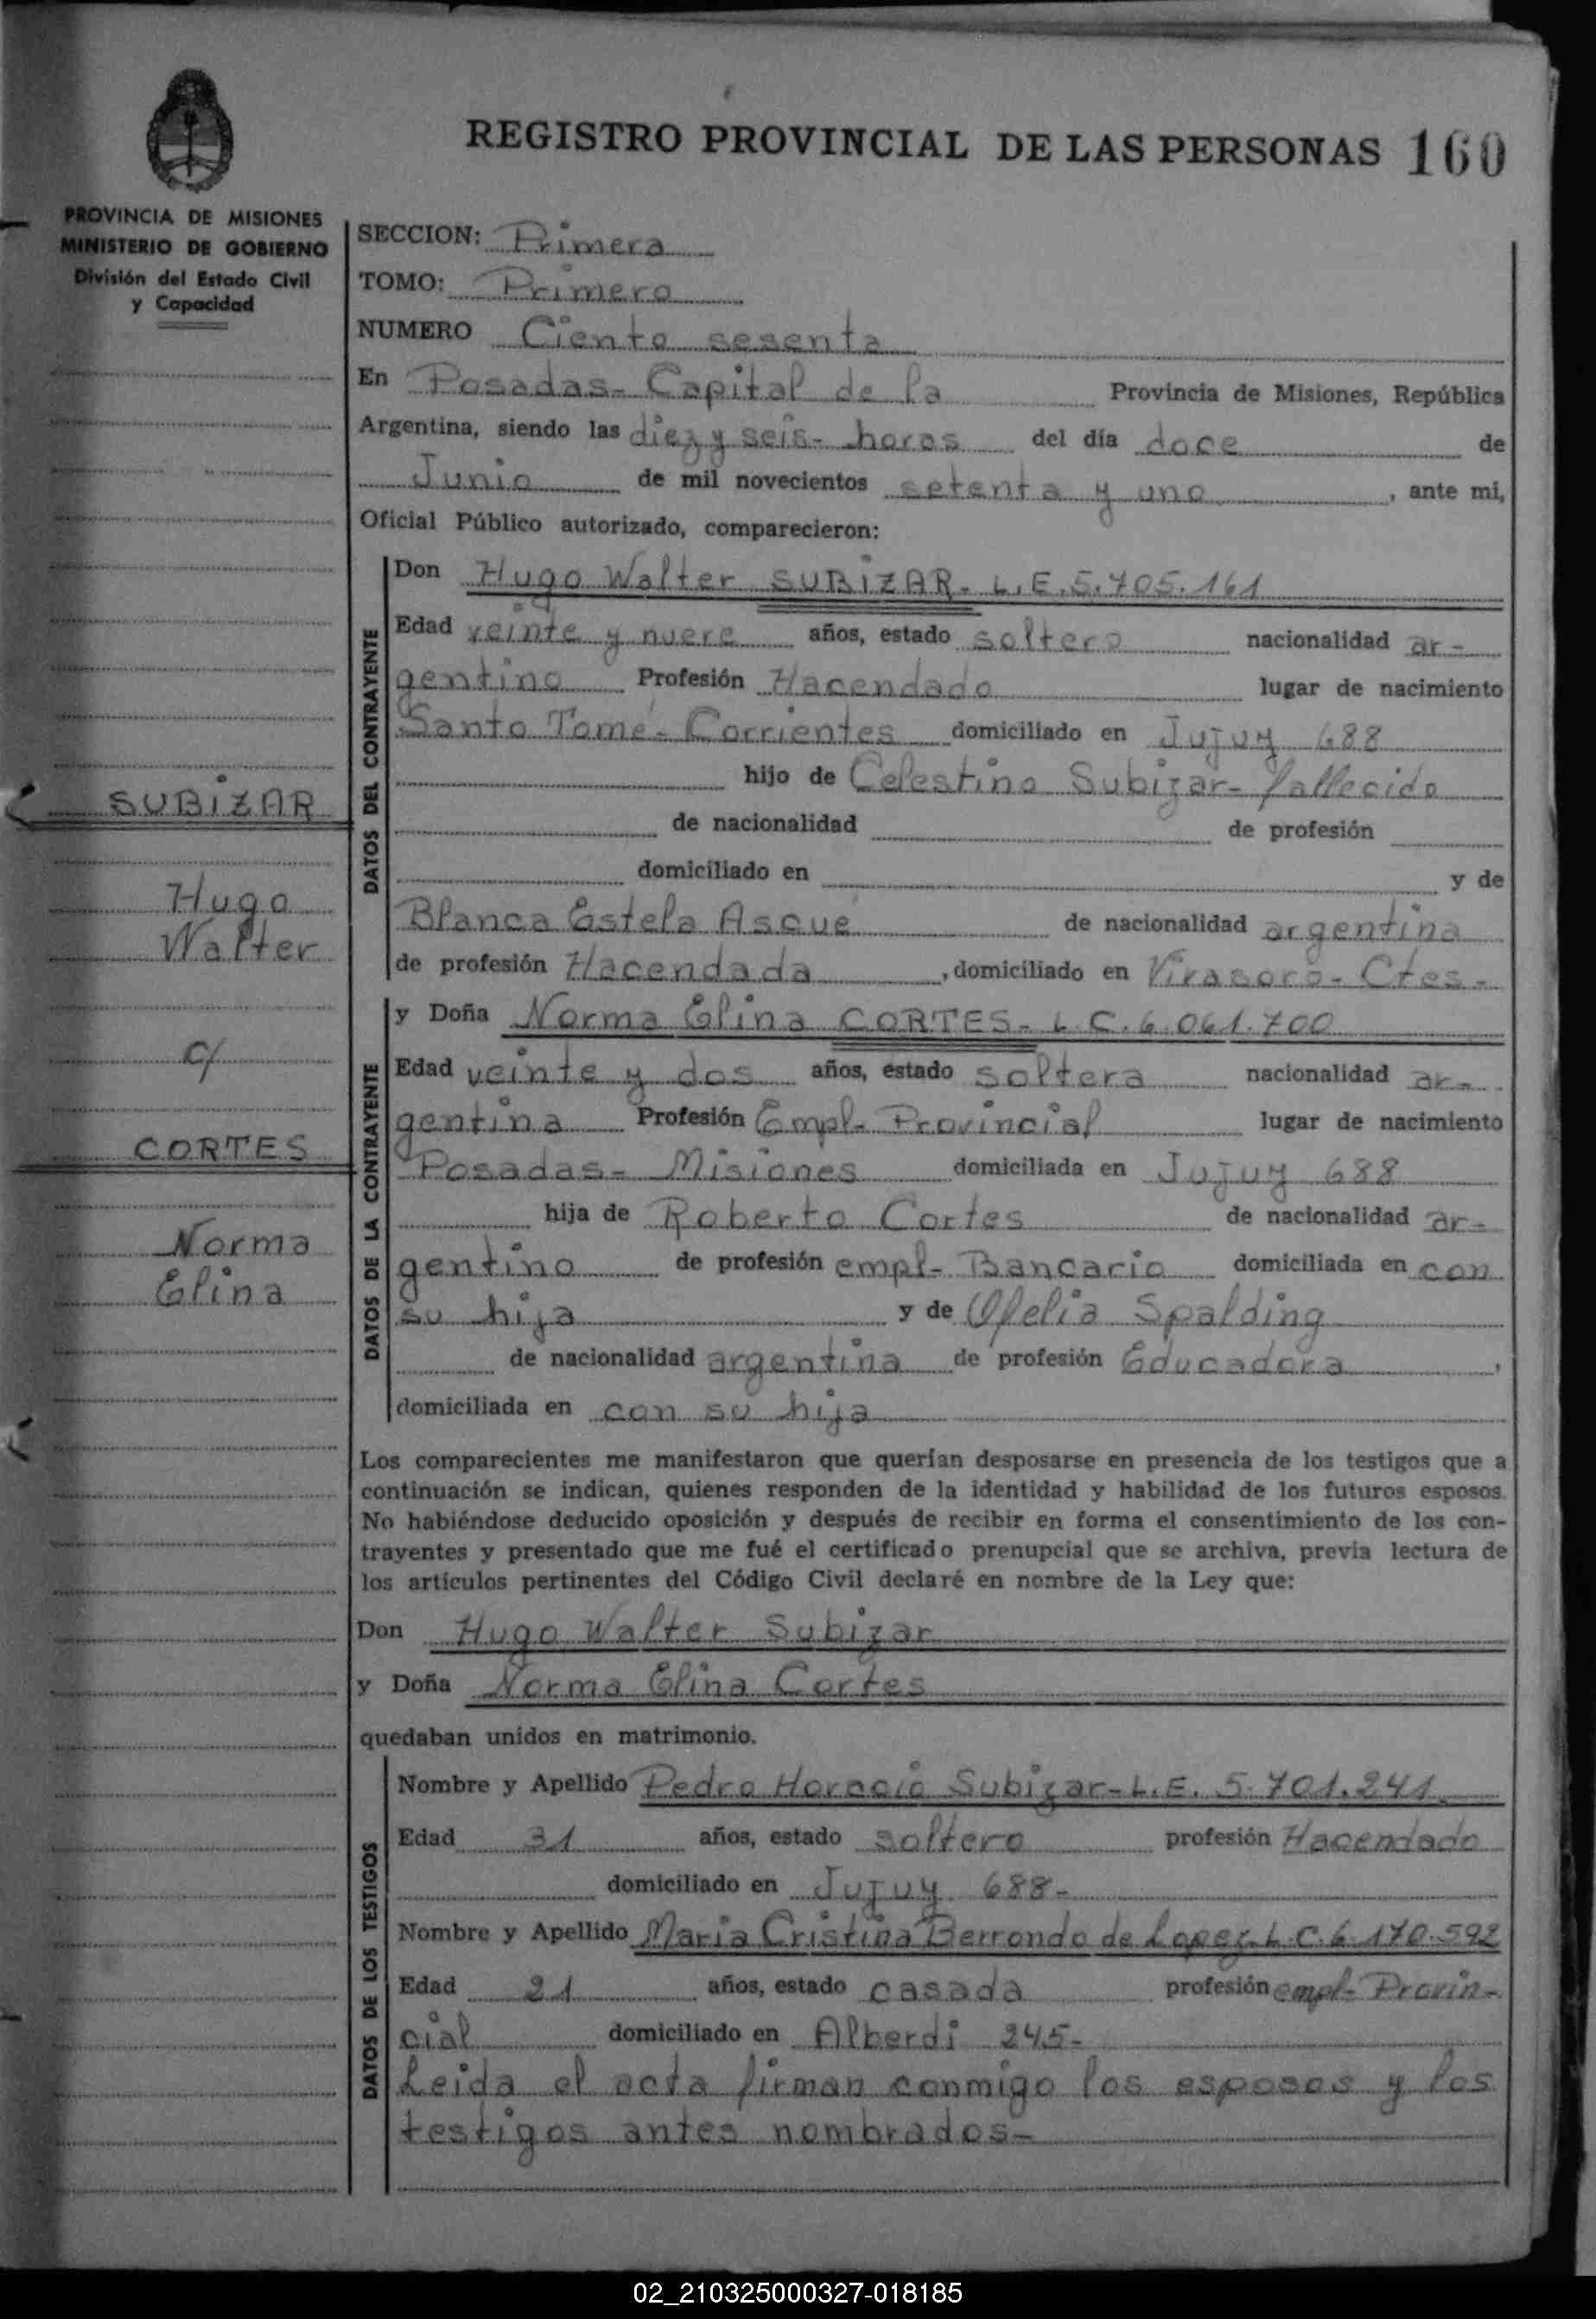 REGISTRO PROVINCIAL DE LAS PERSONAS 160
PROVINCIA DE MISIONES
MINISTERIO DE GOBIERNO
División del Estado Civil
y Capacidad
SUBIZAR
Hugo
Walter
c/
CORTES
Norma
Elina
SECCION: Primera
TOMO: Primero
NUMERO Ciento sesenta
En Posadas- Capital de la Provincia de Misiones, República
Argentina, siendo las diez y seis- horas del día doce de
Junio de mil novecientos setenta y uno, ante mi,
Oficial Público autorizado, comparecieron:
DATOS DEL CONTRAYENTE
Don Hugo Walter SUBIZAR- L.E. 5.705.161
Edad veinte y nueve años, estado soltero nacionalidad ar-
gentino Profesión Hacendado lugar de nacimiento
Santo Tomé- Corrientes domiciliado en Jujuy 688
hijo de Celestino Subizar- fallecido
de nacionalidad de profesión
domiciliado en y de
Blanca Estela Ascué de nacionalidad argentina
de profesión Hacendada, domiciliado en Virasoro- Ctes-
DATOS DE LA CONTRAYENTE
y Doña Norma Elina CORTES- L.C. 6.061.700
Edad veinte y dos años, estado soltera nacionalidad ar-
gentina Profesión Empl- Provincial lugar de nacimiento
Posadas- Misiones domiciliada en Jujuy 688
hija de Roberto Cortes de nacionalidad ar-
gentino de profesión empl- Bancario domiciliada en con
su hija y de Ofelia Spalding
de nacionalidad argentina de profesión Educadora,
domiciliada en con su hija
Los comparecientes me manifestaron que querían desposarse en presencia de los testigos que a
continuación se indican, quienes responden de la identidad y habilidad de los futuros esposos.
No habiéndose deducido oposición y después de recibir en forma el consentimiento de los con-
trayentes y presentado que me fué el certificado prenupcial que se archiva, previa lectura de
los artículos pertinentes del Código Civil declaré en nombre de la Ley que:
Don Hugo Walter Subizar
y Doña Norma Elina Cortes
quedaban unidos en matrimonio.
DATOS DE LOS TESTIGOS
Nombre y Apellido Pedro Horacio Subizar- L.E. 5.701.241
Edad 31 años, estado soltero profesión Hacendado
domiciliado en Jujuy 688-
Nombre y Apellido Maria Cristina Berrondo de Lopez- L.C. 6.170.592
Edad 21 años, estado casada profesión empl- Provin-
cial domiciliado en Alberdi 245-
Leida el acta firman conmigo los esposos y los
testigos antes nombrados-
02_210325000327-018185